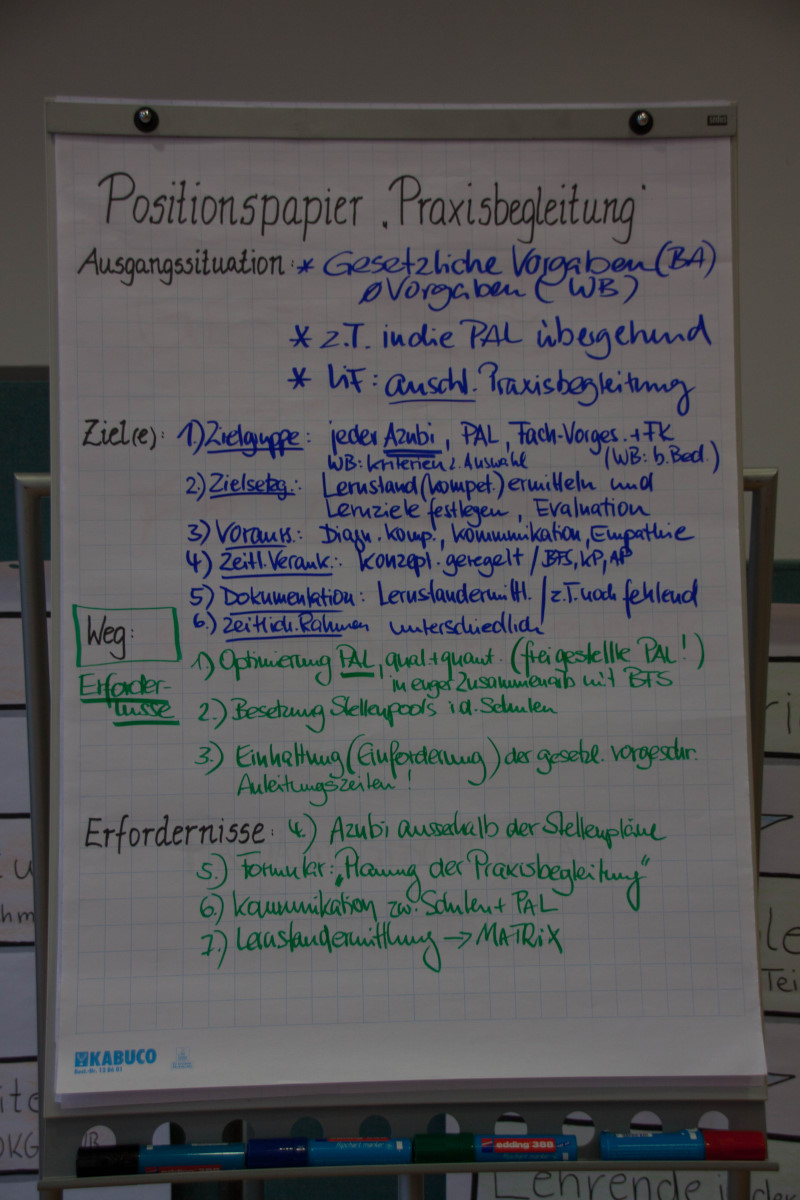 Positionspapier „Praxisbegleitung"
Ausgangssituation: * Gesetzliche Vorgaben (BA)
ØVorgaben (WB)
* z.T. in die PAL übergehend
* LiF: anschl. Praxisbegleitung
Ziel(e): 1) Zielgruppe: jeder Azubi, PAL, Fach-Vorges. + FK
WB: Kriterien z. Auswahl (WB: b. Bed.)
2) Zielsetzg.: Lernstand (kompet.) ermitteln und
Lernziele festlegen, Evaluation
3) Vorauss.: Diagn. komp., Kommunikation, Empathie
4) Zeitl. Verank.: Konzept. geregelt / BFS, KP, AP
5) Dokumentation: Lernstandermittl. / z.T. noch fehlend
6.) Zeitlich. Rahmen unterschiedlich
Weg:
1) Optimierung PAL, qual + quant. (freigestellte PAL!)
in enger Zusammenarb mit BFS
Erforder-
nisse
2.) Besetzung Stellenpools i d. Schulen
3.) Einhaltung (Einforderung) der gesetzl. vorgeschr.
Anleitungszeiten!
Erfordernisse: 4.) Azubi ausserhalb der Stellenpläne
5.) Formular: „Planung der Praxisbegleitung"
6.) Kommunikation zw. Schulen + PAL
7.) Lernstandermittlung → MATRiX
KABUCO
edding 388
Lehrende in den
Tei